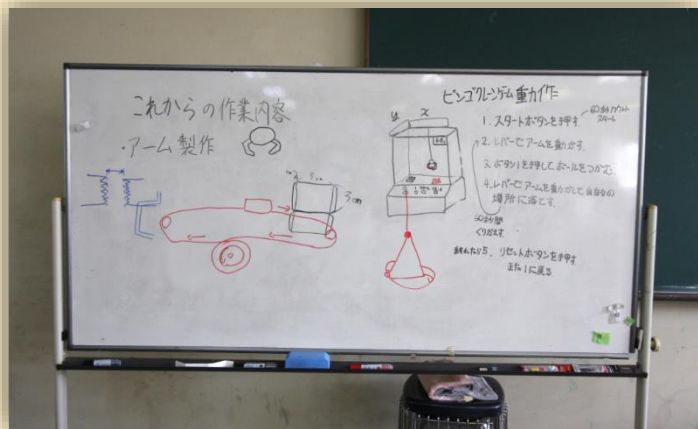 これからの作業内容
・アーム製作
3cm
ビンゴクレーンゲーム動作
y
x
1. スタートボタンを押す
スタート
2. レバーでアームを動かす。
3. ボタンを押してボールをつかむ。
4. レバーでアームを動かして自分の
場所に落とす。
くりかえす
終わったら5. リセットボタンを押す
また1に戻る